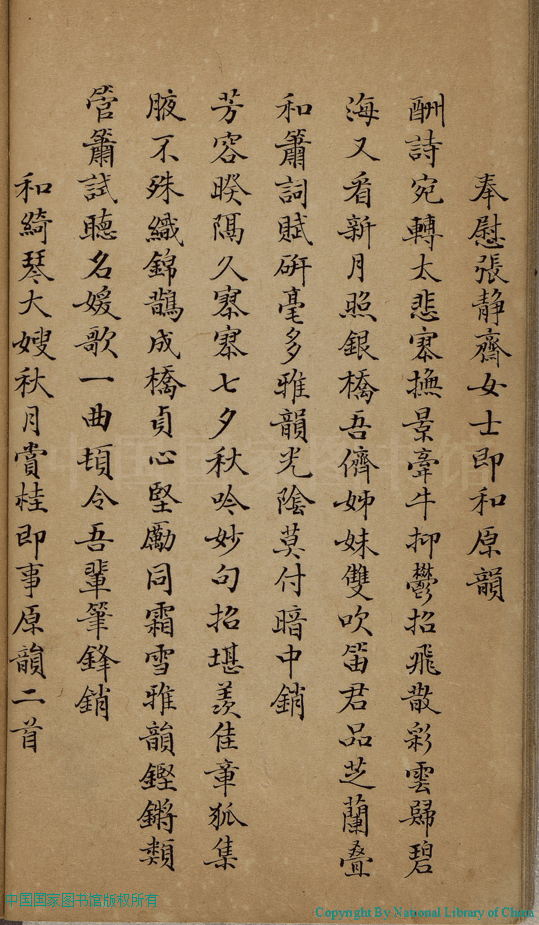 奉慰張靜齋女士即和原韻
酬詩宛轉太悲寥撫景牽牛抑鬱招飛散彩雲歸碧
海又看新月照銀橋吾儕姊妹雙吹笛君品芝蘭疊
和簫詞賦研毫多雅韻光陰莫付暗中銷
芳容暌隔久寥寥七夕秋吟妙句招堪羨佳章狐集
腋不殊織錦鵲成橋貞心堅勵同霜雪雅韻鏗鏘類
管簫試聽名媛歌一曲頓令吾輩筆鋒銷
和綺琴大嫂秋月賞桂即事原韻二首
中国国家图书馆
中国国家图书馆版权所有
Copyright By National Library of China